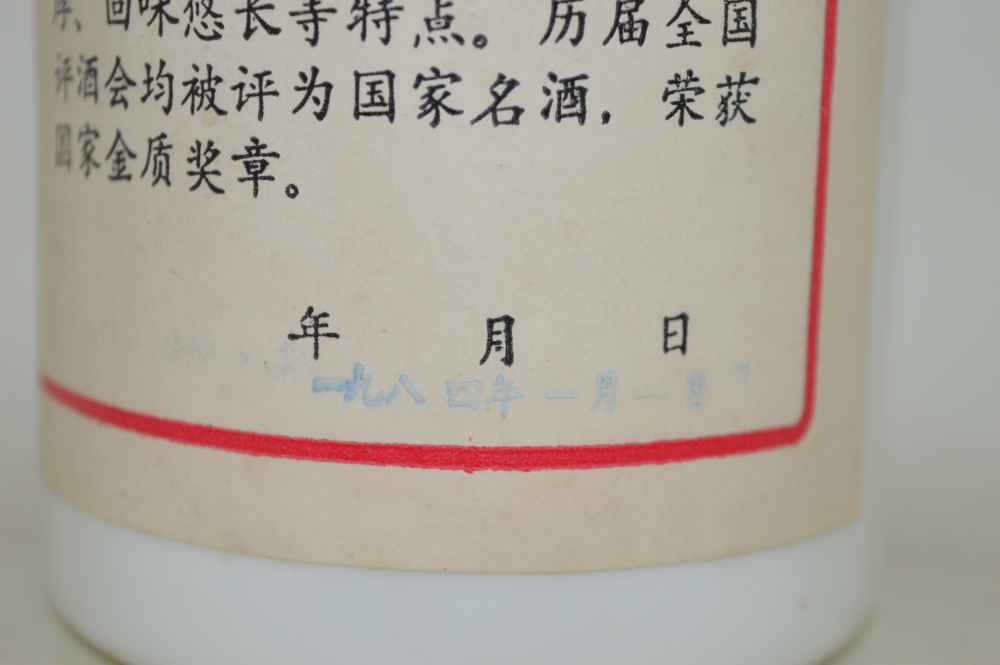 回味悠长等特点。历届全国
评酒会均被评为国家名酒，荣获
国家金质奖章。
年 月 日
一九八四年一月一日